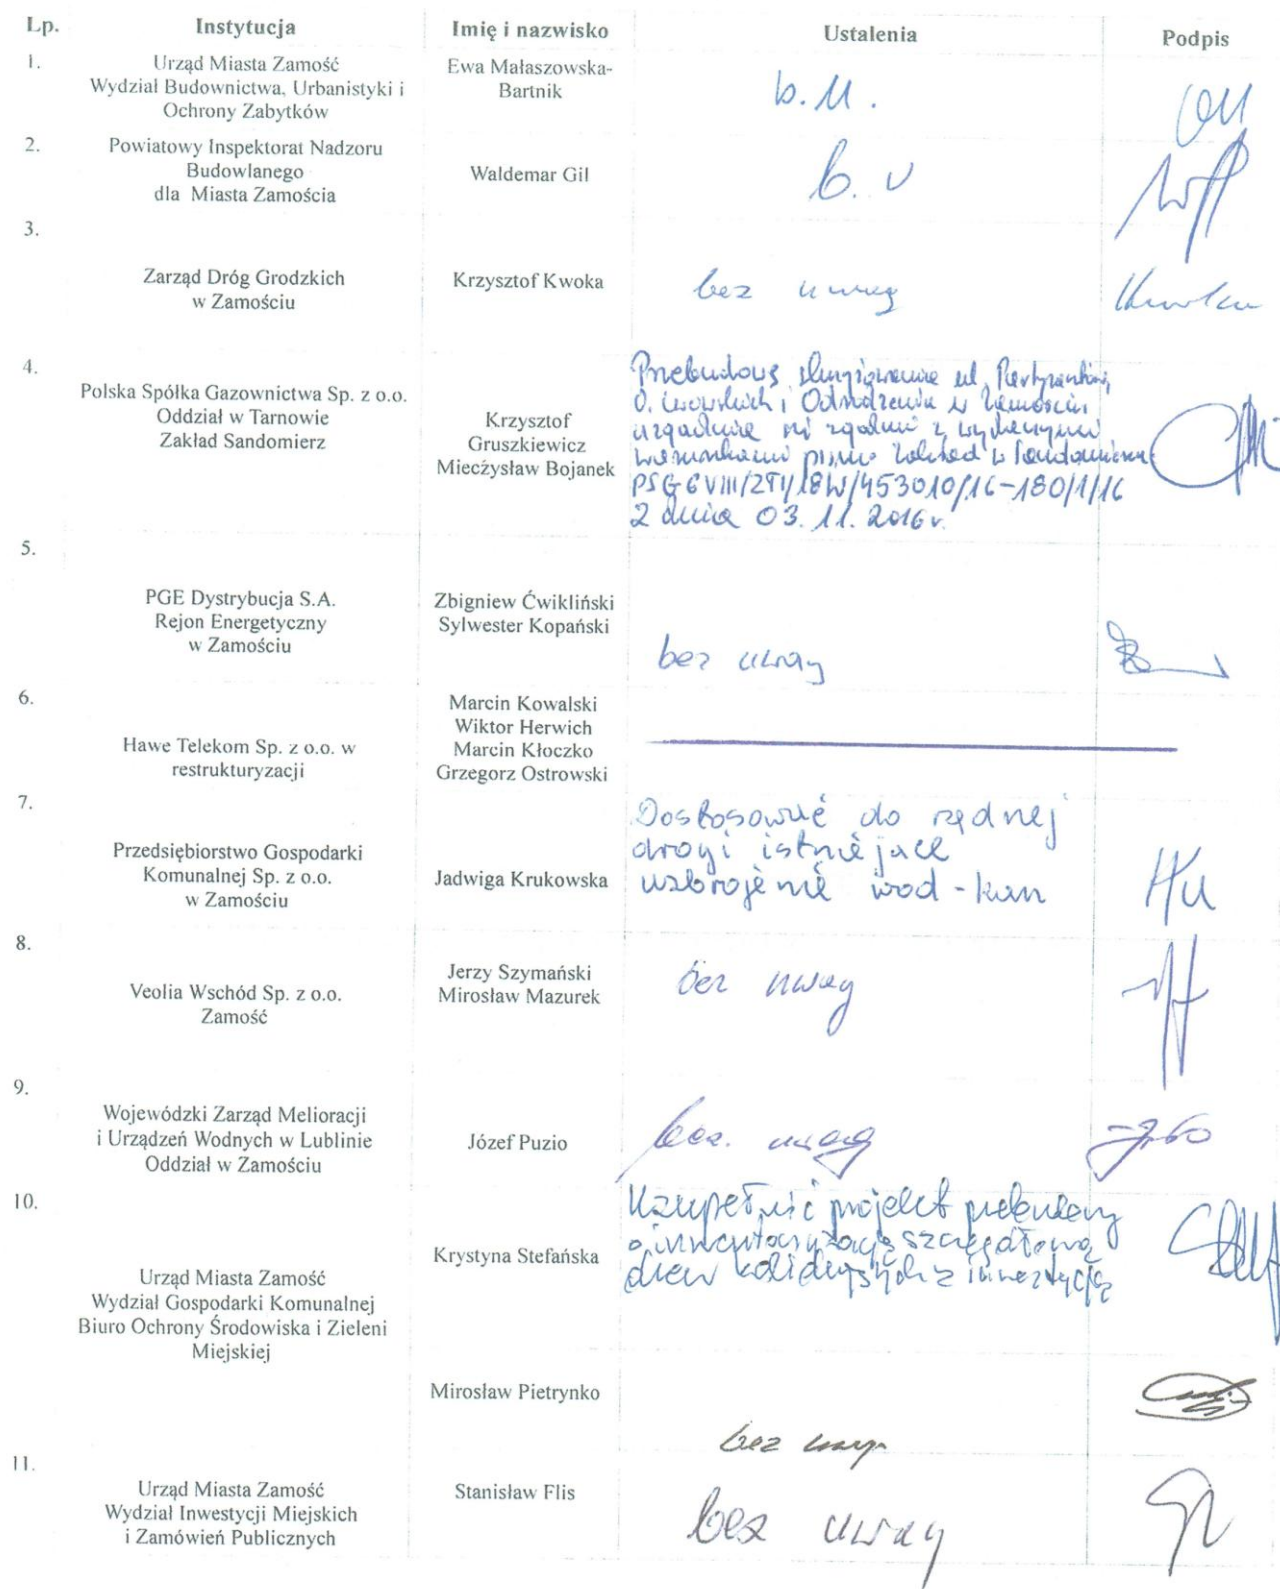 Lp. Instytucja Imię i nazwisko Ustalenia Podpis
1. Urząd Miasta Zamość
Wydział Budownictwa, Urbanistyki i
Ochrony Zabytków
Ewa Małaszowska-
Bartnik
b.u.
2. Powiatowy Inspektorat Nadzoru
Budowlanego
dla Miasta Zamościa
Waldemar Gil
b. u
3.
Zarząd Dróg Grodzkich
w Zamościu
Krzysztof Kwoka
bez uwag
4.
Polska Spółka Gazownictwa Sp. z o.o.
Oddział w Tarnowie
Zakład Sandomierz
Krzysztof
Gruszkiewicz
Mieczysław Bojanek
Przebudowę skrzyżowania ul. Partyzantów,
O. Lwowskich i Odrodzenia w Zamościu
uzgadnia się zgodnie z wydanymi
warunkami pismo Zakład w Sandomierzu
PSG6VIII/ZTI/18W/453010/16-180/1/16
z dnia 03.11.2016r.
5.
PGE Dystrybucja S.A.
Rejon Energetyczny
w Zamościu
Zbigniew Ćwikliński
Sylwester Kopański
bez uwag
6.
Hawe Telekom Sp. z o.o. w
restrukturyzacji
Marcin Kowalski
Wiktor Herwich
Marcin Kłoczko
Grzegorz Ostrowski
7.
Przedsiębiorstwo Gospodarki
Komunalnej Sp. z o.o.
w Zamościu
Jadwiga Krukowska
Dostosować do rzędnej
drogi istniejące
uzbrojenie wod-kan
8.
Veolia Wschód Sp. z o.o.
Zamość
Jerzy Szymański
Mirosław Mazurek
bez uwag
9.
Wojewódzki Zarząd Melioracji
i Urządzeń Wodnych w Lublinie
Oddział w Zamościu
Józef Puzio
bez uwag
10.
Urząd Miasta Zamość
Wydział Gospodarki Komunalnej
Biuro Ochrony Środowiska i Zieleni
Miejskiej
Krystyna Stefańska
Uzupełnić projekt przebudowy
o inwentaryzację szczegółową
drzew kolidujących z inwestycją
Mirosław Pietrynko
bez uwag
11.
Urząd Miasta Zamość
Wydział Inwestycji Miejskich
i Zamówień Publicznych
Stanisław Flis
bez uwag